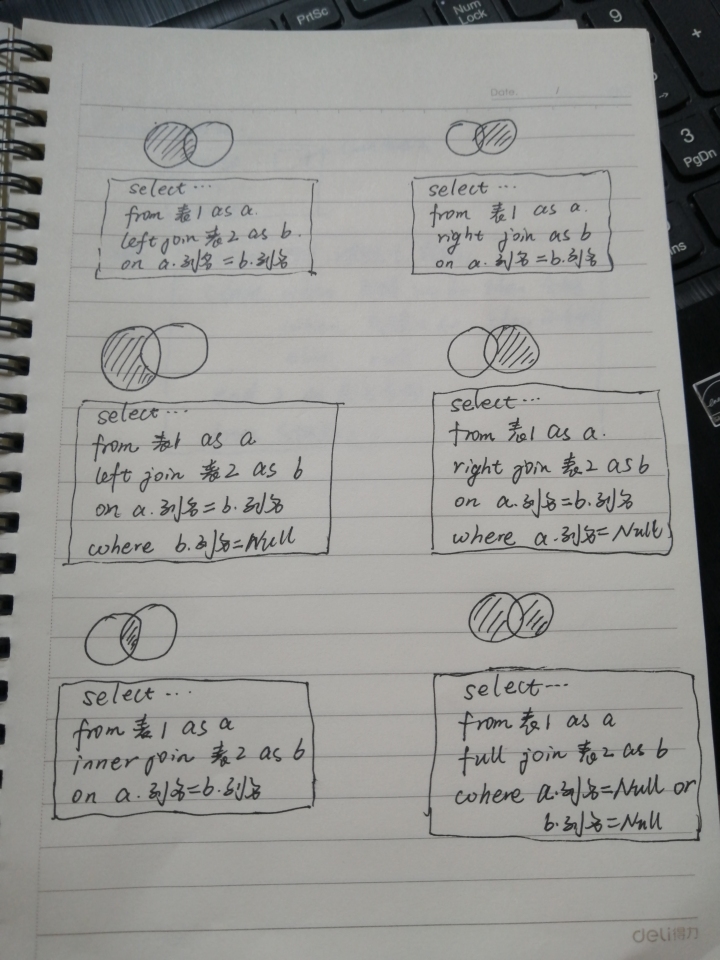 PrtSc
Num
Lock
9
+
3
PgDn
Date. /
select ...
from 表1 as a.
left join 表2 as b.
on a.列名 = b.列名
select ...
from 表1 as a.
right join as b
on a.列名 = b.列名
select ...
from 表1 as a
left join 表2 as b
on a.列名 = b.列名
where b.列名 = Null
select ...
from 表1 as a.
right join 表2 as b
on a.列名 = b.列名
where a.列名 = Null
select ...
from 表1 as a
inner join 表2 as b
on a.列名 = b.列名
select ...
from 表1 as a
full join 表2 as b
where a.列名 = Null or
b.列名 = Null
deli得力